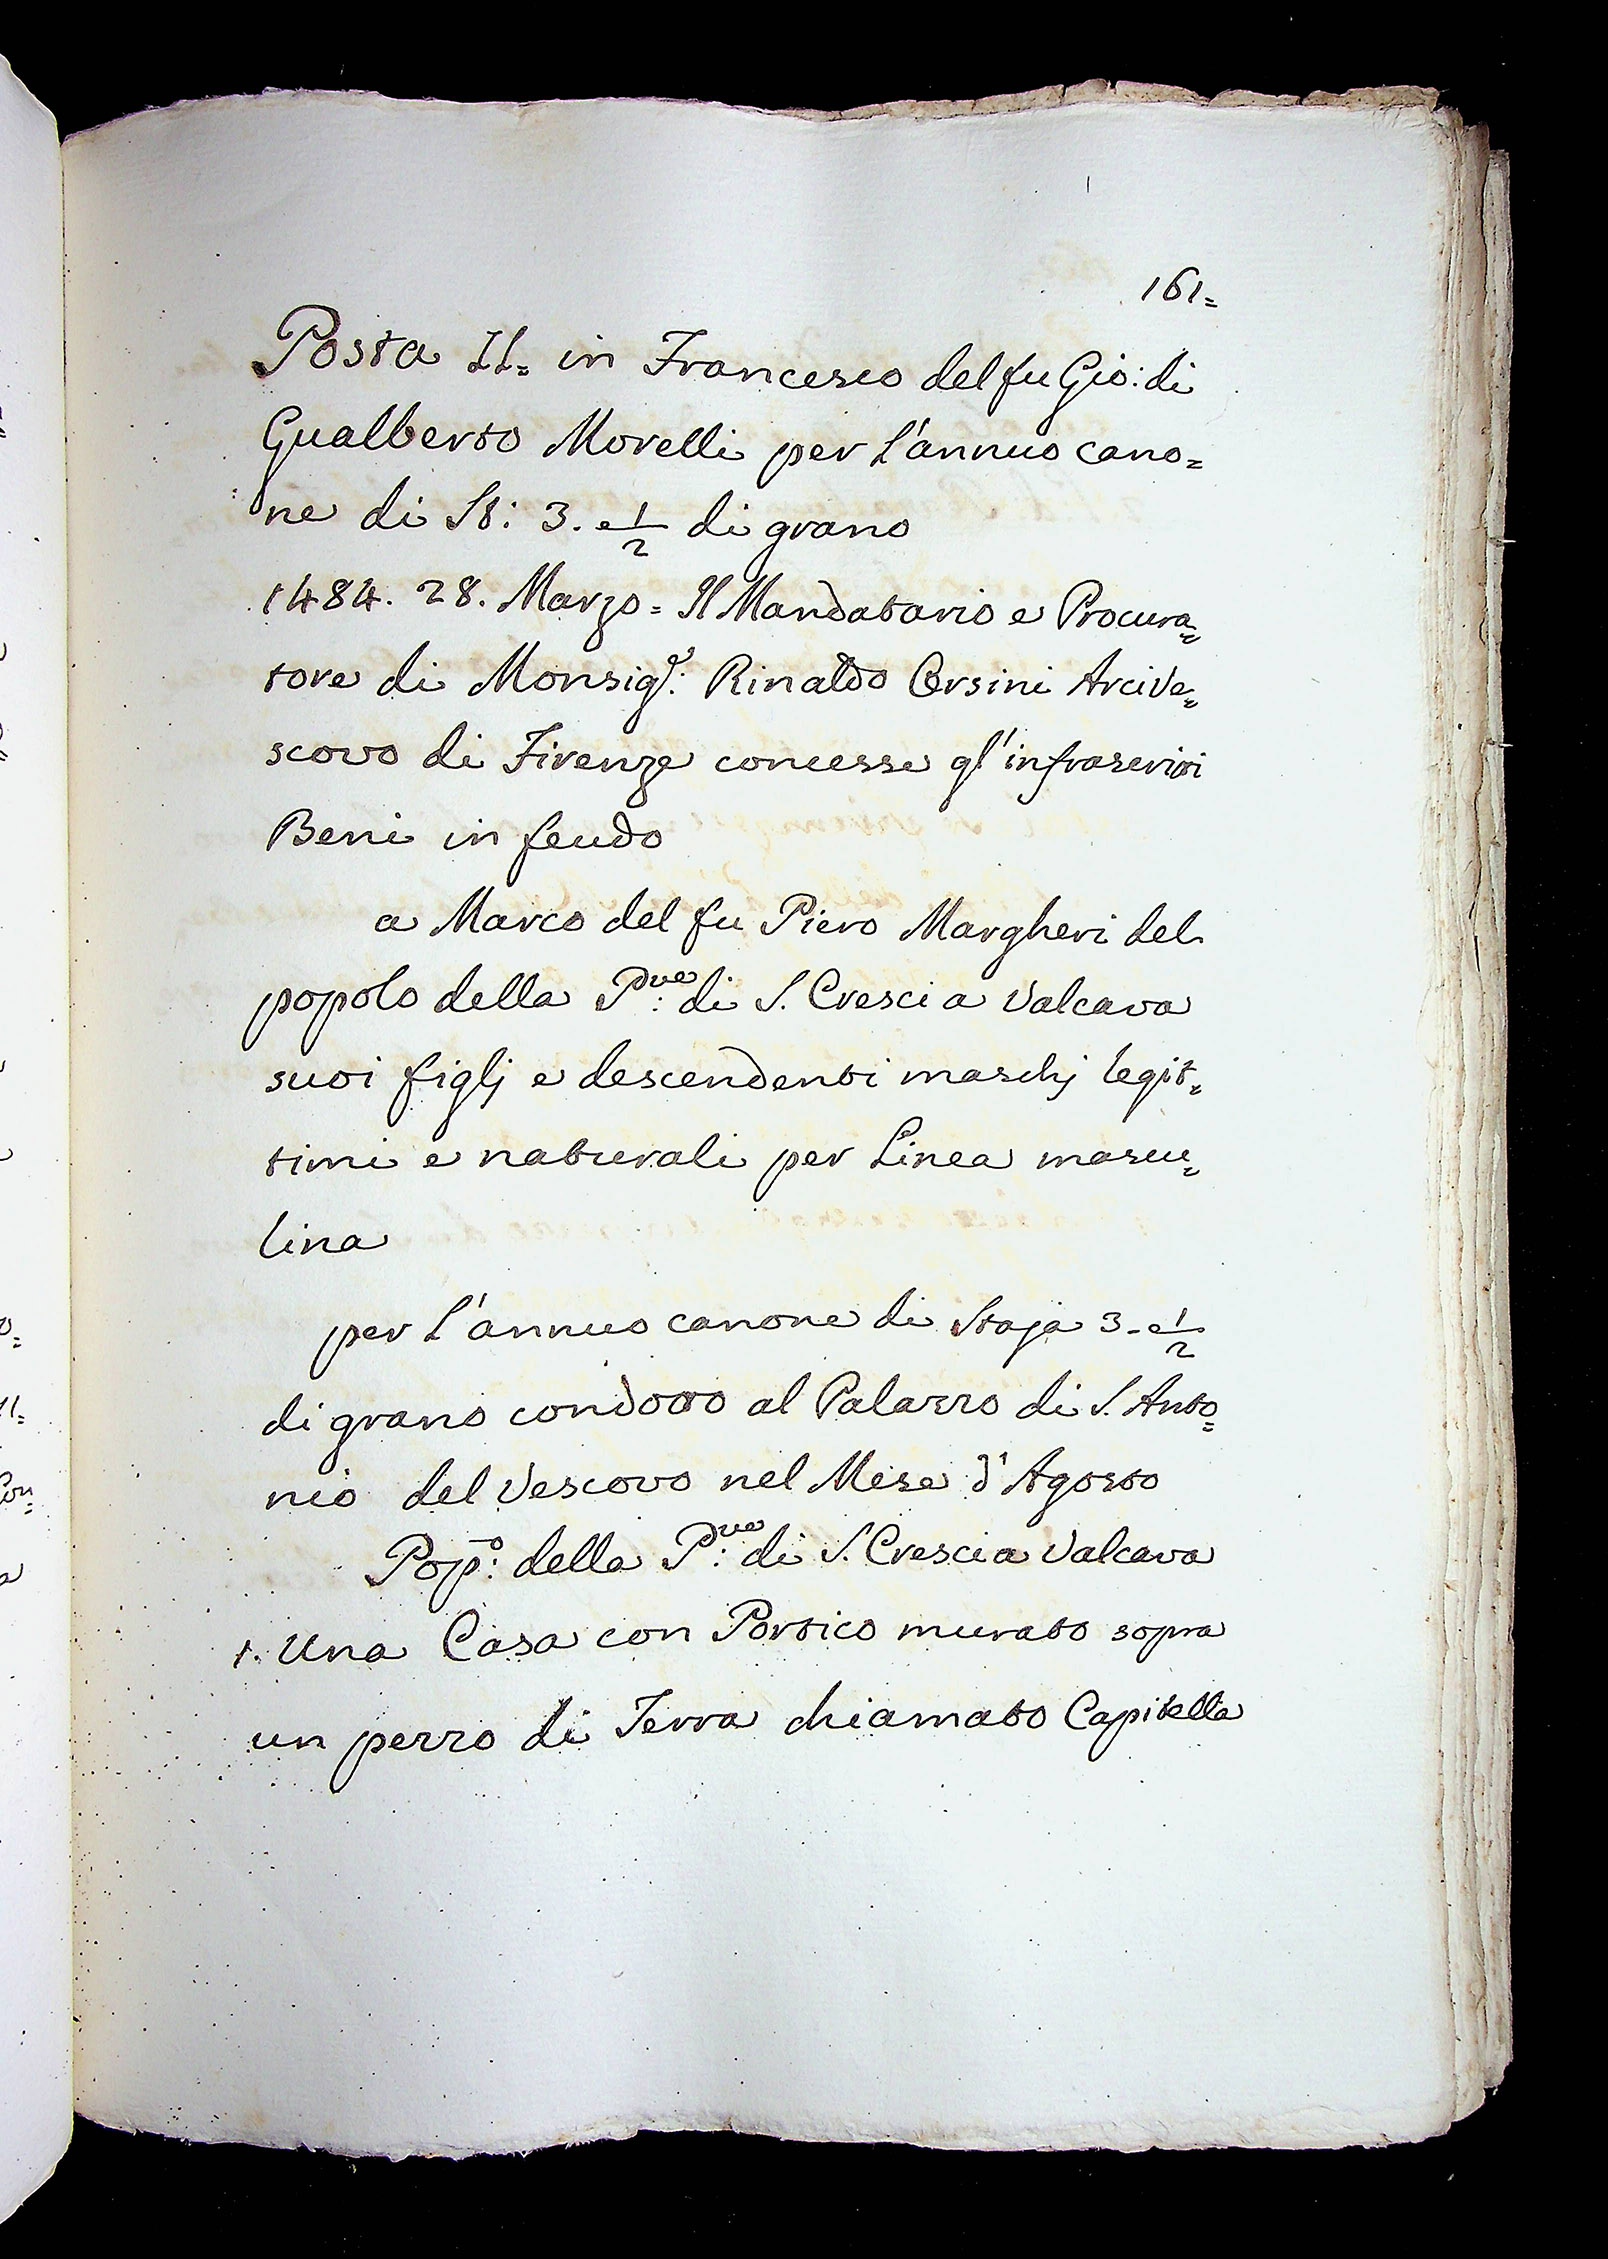 161=
Posta II= in Francesco del fu Gio: di
Gualberto Morelli per l'annuo cano=
ne di St: 3. e 1/2 di grano
1484. 28. Marzo = Il Mandatario e Procura=
tore di Monsigr: Rinaldo Orsini Arcive=
scovo di Firenze concesse gl'infrascritti
Beni in feudo
a Marco del fu Piero Margheri del
popolo della Pve: di S. Cresci a Valcava
suoi figlj e descendenti maschj legit=
timi e naturali per Linea mascu=
lina
per l'annuo canone di Staja 3. e 1/2
di grano condotto al Palazzo di S. Anto=
nio del Vescovo nel Mese d'Agosto
Popo: della Pve: di S. Cresci a Valcava
1. Una Casa con Portico murato sopra
un pezzo di Terra chiamato Capitella